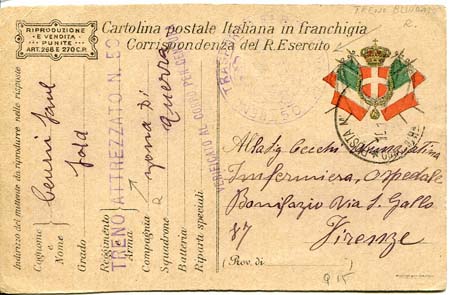 RIPRODUZIONE
E VENDITA
PUNITE
ART. 268 E 270 C.P.
Cartolina postale Italiana in franchigia
Corrispondenza del R. Esercito
TRENO
R.
Indirizzo del mittente da riprodurre nelle risposte
Cognome e Nome
Grado
Sold
Reggimento
Arma
TRENO ATTREZZATO N. 50
Compagnia
zona di
Squadrone
guerra
Batteria
Riparti speciali
VERIFICATO AL CORPO PER CENSURA
POSTA M
All
Cecchi
Infermiera, ospedale
Bonifazio Via S. Gallo
87
Firenze
(Prov. di )
Q 15